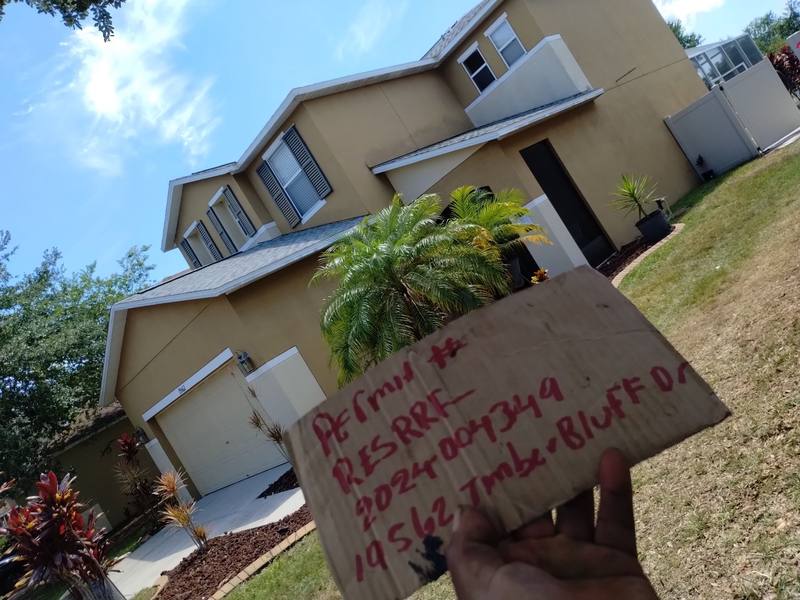 Permit #
RESRRF-
2024004349
19562 Timber Bluff Dr